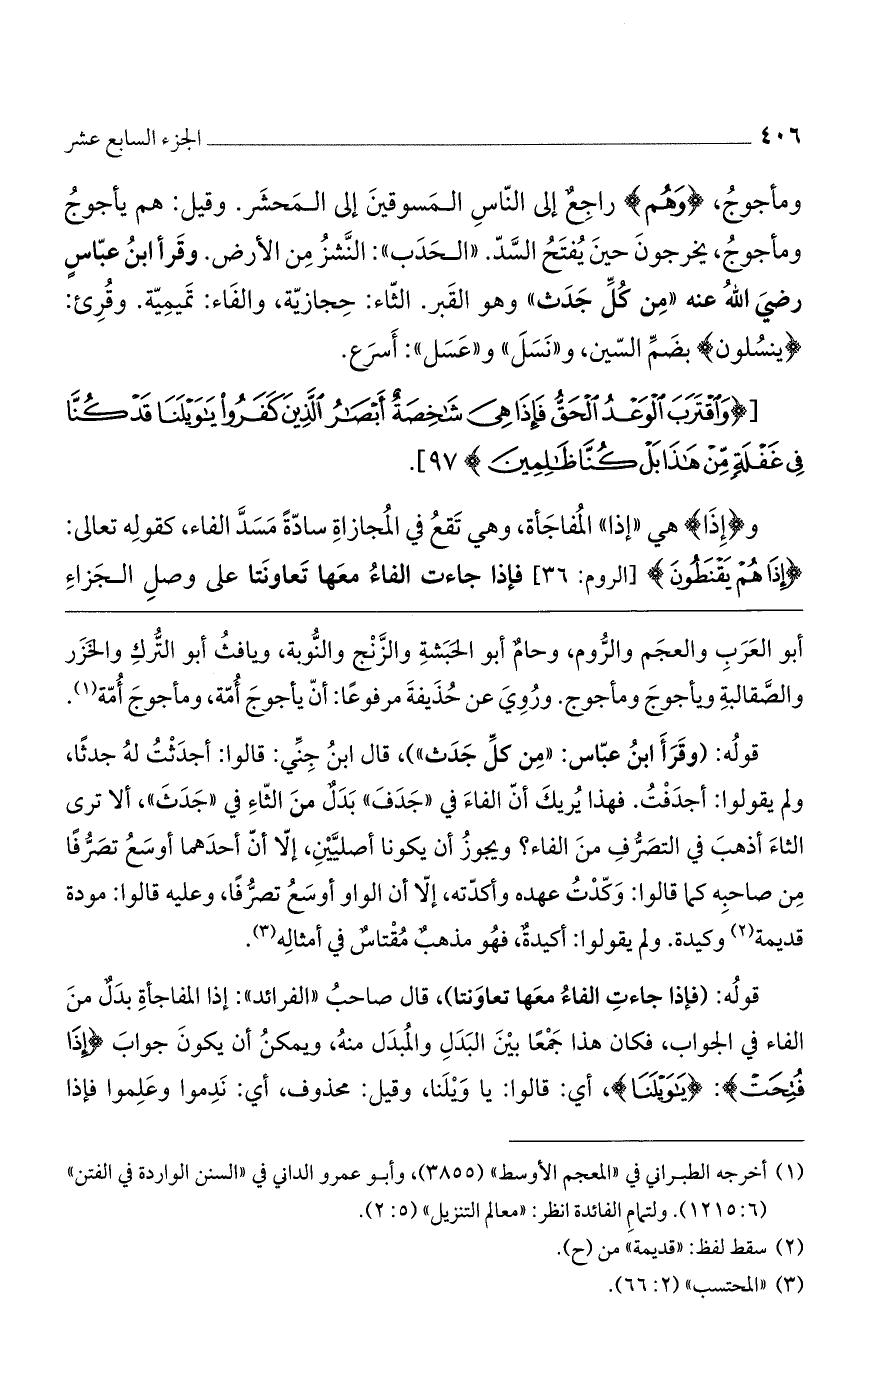 ٤٠٦ الجزء السابع عشر
ومأجوجُ، ﴿وَهُم﴾ راجِعٌ إلى النّاسِ المَسوقينَ إلى المَحشَر. وقيل: هم يأجوجُ
ومأجوجُ، يخرجونَ حينَ يُفتَحُ السَّدّ. «الحَدَب»: النَّشزُ مِن الأرض. وقَرأ ابنُ عبّاسٍ
رضيَ اللهُ عنه «مِن كُلِّ جَدَث» وهو القَبر. الثّاء: حِجازيّة، والفَاء: تَميمِيّة. وقُرِئ:
﴿ينسُلون﴾ بضَمِّ السّين، و«نَسَلَ» و«عَسَل»: أَسرَع.
[﴿وَٱقْتَرَبَ ٱلْوَعْدُ ٱلْحَقُّ فَإِذَا هِىَ شَٰخِصَةٌ أَبْصَٰرُ ٱلَّذِينَ كَفَرُوا۟ يَٰوَيْلَنَا قَدْ كُنَّا
فِى غَفْلَةٍ مِّنْ هَٰذَا بَلْ كُنَّا ظَٰلِمِينَ﴾ ٩٧].
و﴿إِذَا﴾ هي «إذا» المُفاجَأة، وهي تَقعُ في المُجازاةِ سادّةً مَسَدَّ الفاء، كقولِه تعالى:
﴿إِذَا هُمْ يَقْنَطُونَ﴾ [الروم: ٣٦] فإذا جاءت الفاءُ معَها تَعاونَتا على وصلِ الجَزاءِ
أبو العَرَبِ والعجَم والرُّوم، وحامٌ أبو الحَبَشةِ والزَّنْج والنُّوبة، ويافثُ أبو التُّركِ والخَزَر
والصَّقالبةِ ويأجوجَ ومأجوج. ورُوِيَ عن حُذَيفةَ مرفوعًا: أنّ يأجوجَ أُمّة، ومأجوجَ أُمّة(١).
قولُه: (وقَرَأَ ابنُ عبّاس: «مِن كلِّ جَدَث»)، قال ابنُ جِنِّي: قالوا: أجدَثْتُ لهُ جدثًا،
ولم يقولوا: أجدَفْتُ. فهذا يُريكَ أنّ الفاءَ في «جَدَف» بَدَلٌ منَ الثّاءِ في «جَدَثَ»، ألا ترى
الثاءَ أذهبَ في التصَرُّفِ منَ الفاء؟ ويجوزُ أن يكونا أصليَّيْنِ، إلّا أنّ أحدَهما أوسَعُ تصَرُّفًا
مِن صاحبِه كما قالوا: وَكّدْتُ عهده وأكدّته، إلّا أن الواو أوسَعُ تصرُّفًا، وعليه قالوا: مودة
قديمة(٢) وكيدة. ولم يقولوا: أكيدةٌ، فهُو مذهبٌ مُقْتاسٌ في أمثالِه(٣).
قولُه: (فإذا جاءتِ الفاءُ معَها تعاوَنتا)، قال صاحبُ «الفرائد»: إذا المفاجأةِ بدَلٌ منَ
الفاء في الجواب، فكان هذا جَمْعًا بيْنَ البَدَلِ والمُبدَل منهُ، ويمكنُ أن يكونَ جوابَ ﴿إِذَا
فُتِحَتْ﴾: ﴿يَٰوَيْلَنَا﴾، أي: قالوا: يا وَيْلَنا، وقيل: محذوف، أي: نَدِموا وعَلِموا فإذا
(١) أخرجه الطبراني في «المعجم الأوسط» (٣٨٥٥)، وأبو عمرو الداني في «السنن الواردة في الفتن»
(٦: ١٢١٥). ولتمامِ الفائدة انظر: «معالم التنزيل» (٥: ٢).
(٢) سقط لفظ: «قديمة» من (ح).
(٣) «المحتسب» (٢: ٦٦).